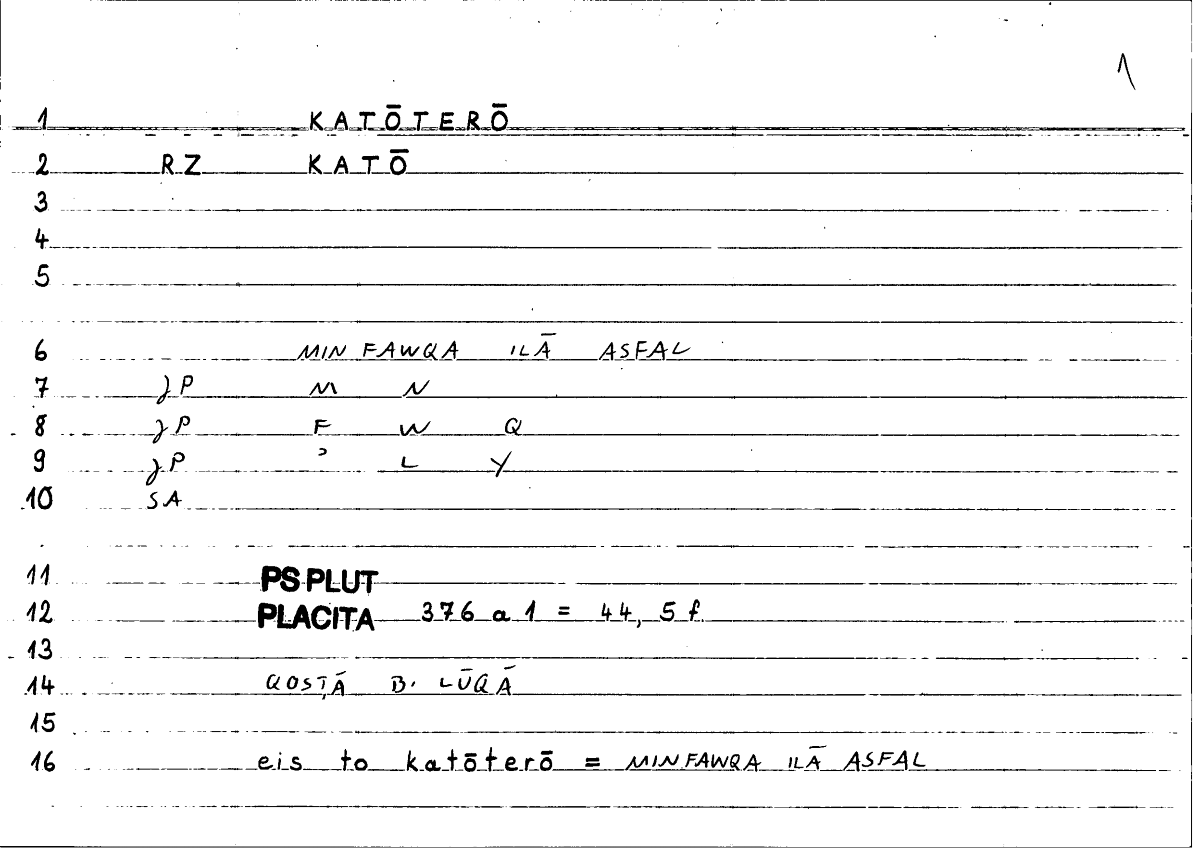 1
1 KATŌTERŌ
2 RZ KATŌ
3
4
5
6 MIN FAWQA ILĀ ASFAL
7 P M N
8 P F W Q
9 P ʾ L Y
10 SA
11 PS PLUT
12 PLACITA 376 a 1 = 44, 5 f
13
14 QOSṬĀ B. LŪQĀ
15
16 eis to katōterō = MIN FAWQA ILĀ ASFAL